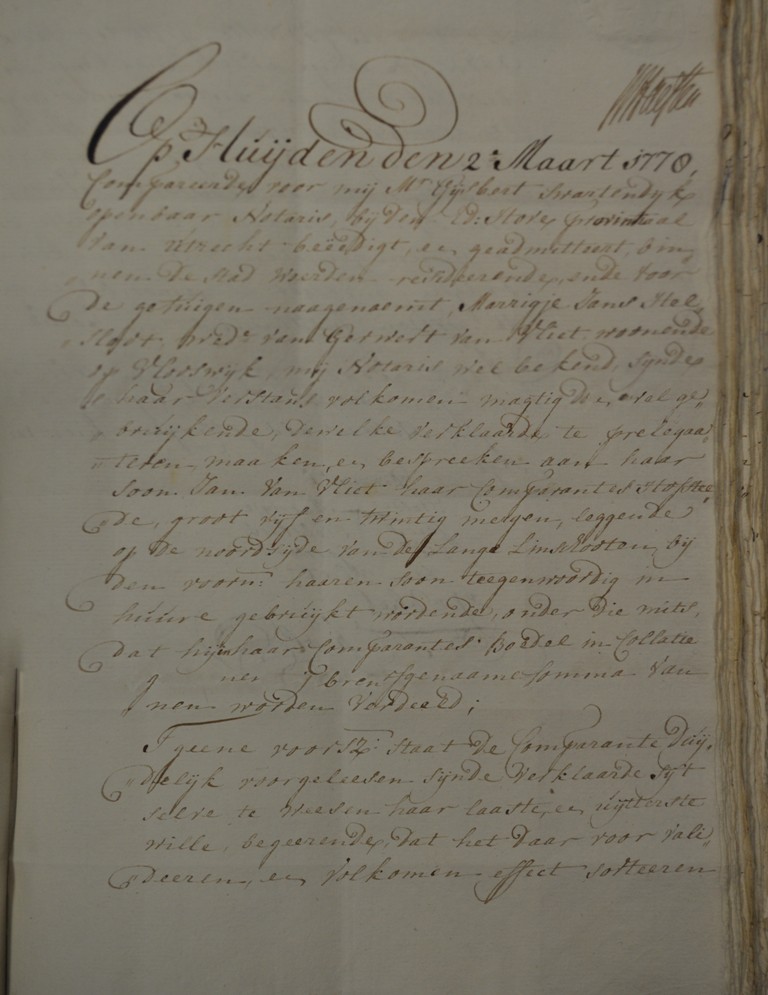 Op Huijden den 2:e Maart 1778,
Compareerde voor mij M:r Gijsbert Swartendijk
openbaar Notaris, bij den Ed: Hove provintiaal
van Utrecht beëedigt, en geadmitteert, bin„
„nen de stad Woerden resideerende, ende voor
de getuigen naagenaemt, Marrigje Jans
wed:e van Gerwert van Vliet, woonende
op Vlooswijk, mij Notaris wel bekend, synde
haar verstand volkomen magtig en wel ge„
„bruijkende, dewelke verklaarde te prelegaa„
„teren maaken, en bespreeken aan haar
soon Jan van Vliet haar Comparantes Hofstee„
de, groot vijf en twintig mergen, leggende
op de noordzijde van de Lange Linschooten, bij
den voorn: haaren soon teegenwoordig in
huure gebruijkt wordende, onder die mits,
dat hij in haar Comparantes Boedel in Collatie
somma van
nen worden verdeeld;
'T geene voorsz: staat de Comparante duij„
„delijk voorgeleesen synde verklaarde 't
selve te weesen haar laaste, en uijtterste
wille, begeerende, dat het daar voor vali„
„deeren, en volkomen effect sorteeren